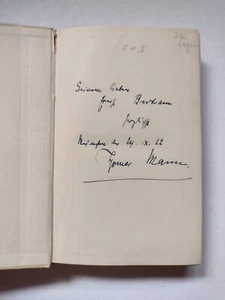 Seinem lieben
Ernst Bertram
herzlich
München den 24. X. 22
Thomas Mann.